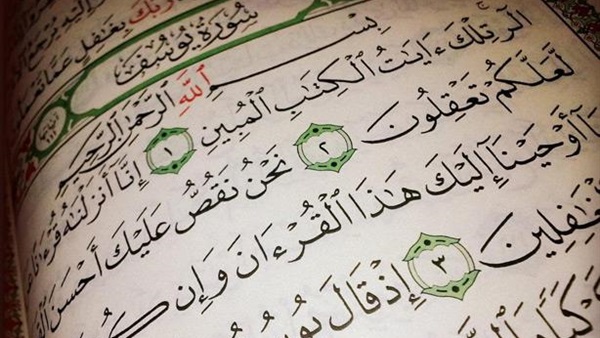 إِلَيْهِ يُرْجَعُ
رَبُّكَ بِغَٰفِلٍ عَمَّا تَعْمَلُ
سُورَةُ يُوسُفَ
بِسْمِ ٱللَّهِ ٱلرَّحْمَٰنِ ٱلرَّحِيمِ
الٓر تِلْكَ ءَايَٰتُ ٱلْكِتَٰبِ ٱلْمُبِينِ ١ إِنَّآ أَنزَلْنَٰهُ قُرْءَٰنًا
لَّعَلَّكُمْ تَعْقِلُونَ ٢ نَحْنُ نَقُصُّ عَلَيْكَ أَحْسَنَ
أَوْحَيْنَآ إِلَيْكَ هَٰذَا ٱلْقُرْءَانَ وَإِن كُ
لْغَٰفِلِينَ ٣ إِذْ قَالَ يُو